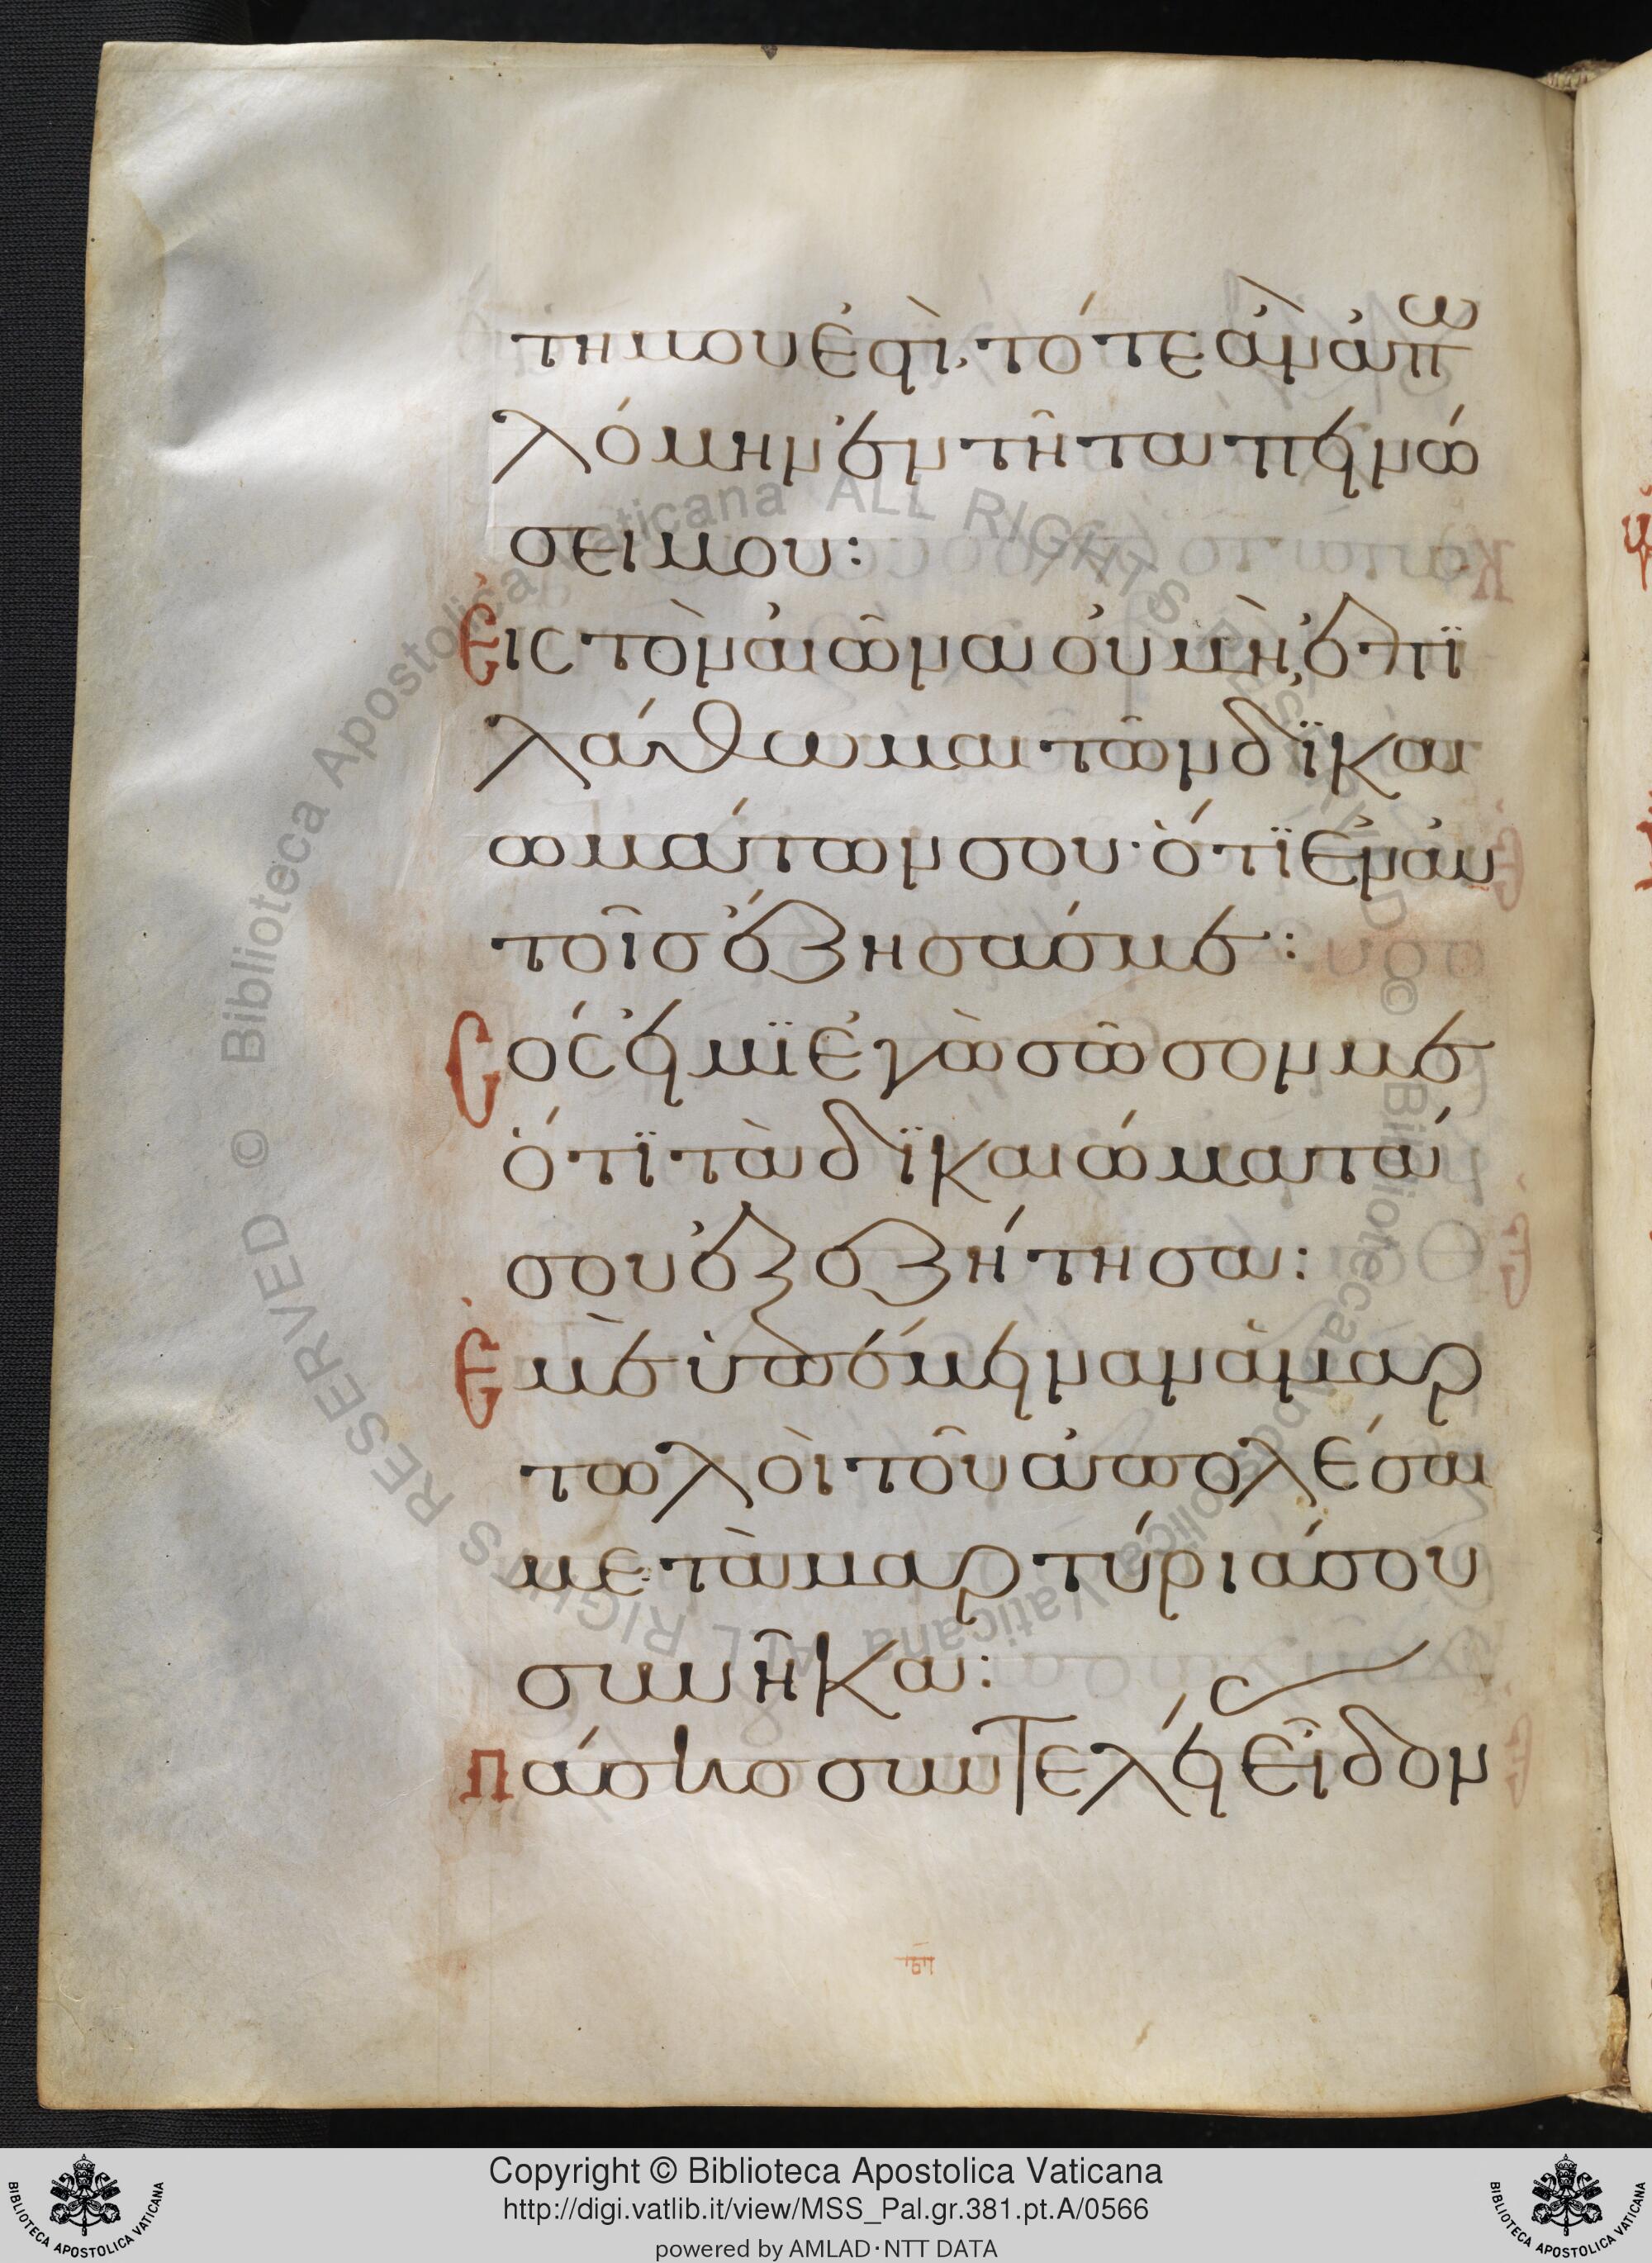 τημουἐστὶ, τότε ἂν ἀπω
λόμην ἐν τῇ ταπεινώ
σει μου:
Εἰς τὸν αἰῶνα οὐ μὴ ἐπϊ
λάθωμαι τῶν δϊκαι
ωμάτων σου· ὅτϊ ἐν αὐ
τοῖσ ἔζησάσ με:
Σός εἰμϊ ἐγὼ σῶσον με
ὅτϊ τὰ δϊκαιώματά
σου ἐξεζήτησα:
Ἐμὲ ὑπέμειναν ἁμαρ
τωλοὶ τοῦ ἀπολέσαι
με· τὰ μαρτύριά σου
συνῆκα:
Πάσησ συντελείας εἶδον
Copyright © Biblioteca Apostolica Vaticana
http://digi.vatlib.it/view/MSS_Pal.gr.381.pt.A/0566
powered by AMLAD·NTT DATA
BIBLIOTECA APOSTOLICA VATICANA
BIBLIOTECA APOSTOLICA VATICANA
© Biblioteca Apostolica Vaticana ALL RIGHTS RESERVED © Biblioteca Apostolica Vaticana ALL RIGHTS RESERVED